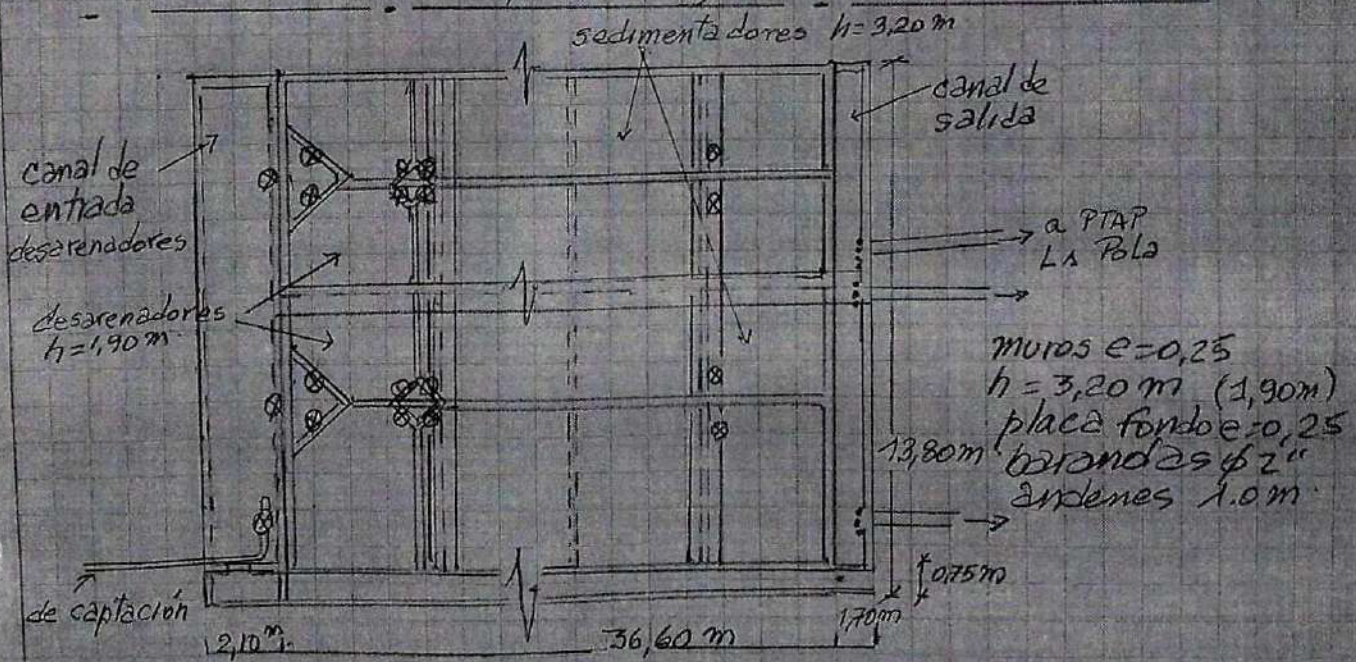 sedimentadores h=3,20 m
canal de
salida
canal de
entrada
desarenadores
a PTAP
La Pola
desarenadores
h=1,90 m.
muros e=0,25
h=3,20 m (1,90m)
placa fondo e=0,25
13,80m
barandas ϕ 2"
andenes 1.0m.
0,75m
de captación
1,70m
2,10m.
36,60 m